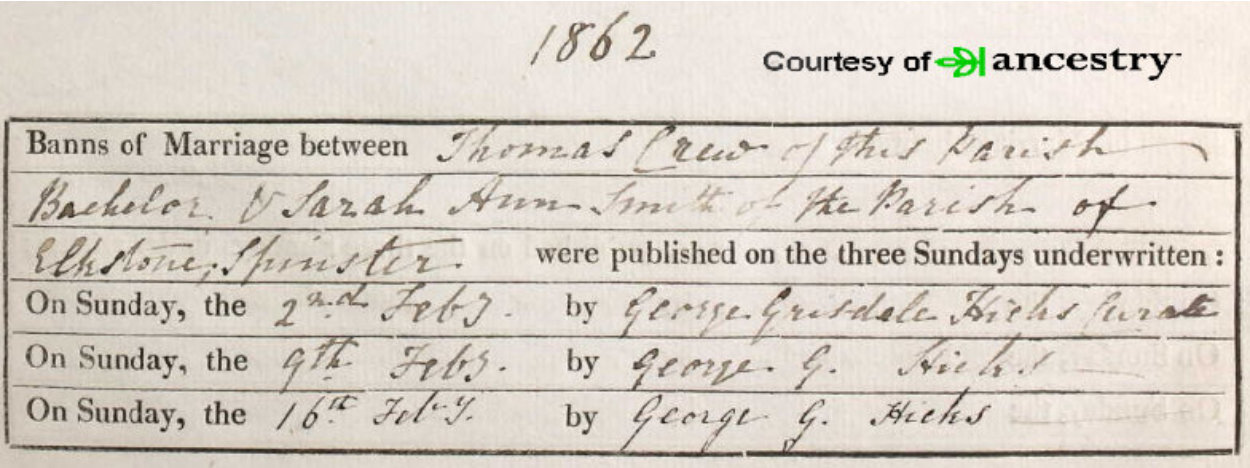 1862
Courtesy of ancestry
Banns of Marriage between Thomas Crew of this Parish
Bachelor & Sarah Ann Smith of the Parish of
Elkstone, Spinster were published on the three Sundays underwritten :
On Sunday, the 2nd Feby. by George Grisdale Hicks Curate
On Sunday, the 9th Feby. by George G. Hicks
On Sunday, the 16th Feby. by George G. Hicks